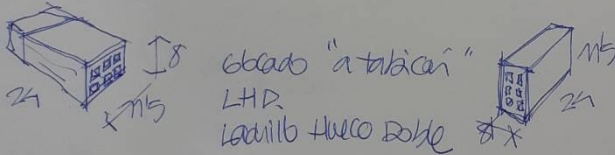 8
24
11'5
colocado "a tabicón"
LHD.
Ladrillo Hueco Doble
11'5
24
8